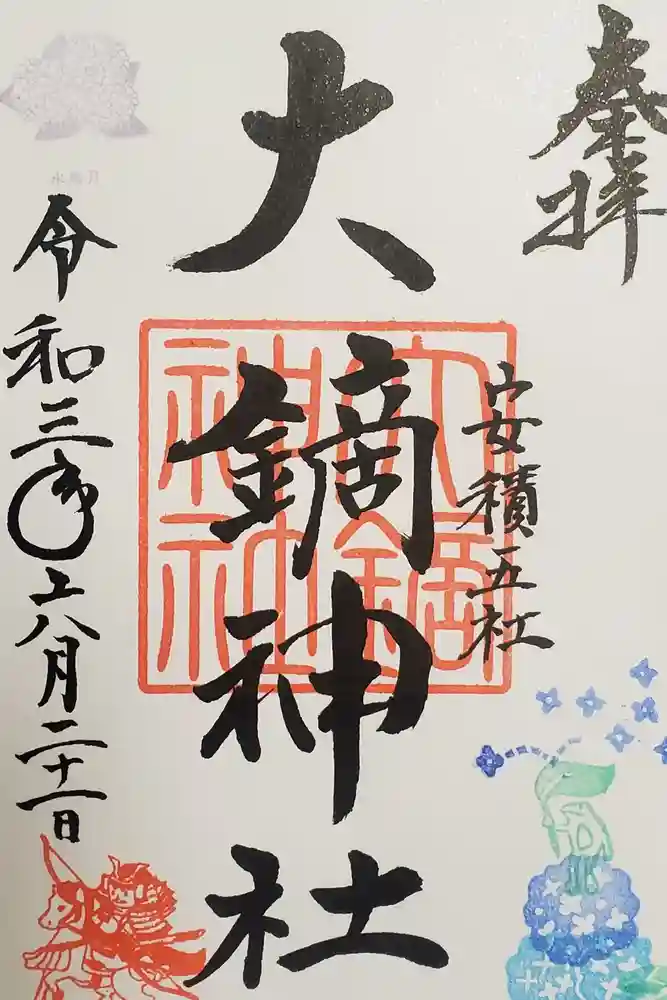 奉拝
安積五社
大鏑神社
大鏑
神社
水無月
令和三年六月二十一日